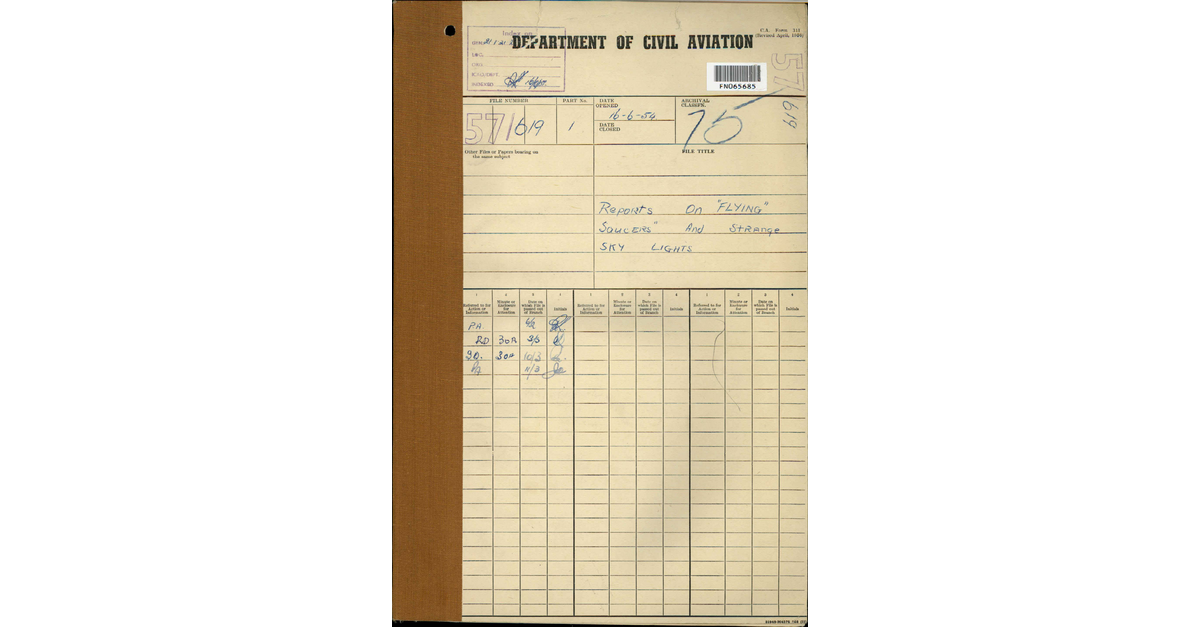 Index on
DEPARTMENT OF CIVIL AVIATION
C.A. Form 111
FN065685
57
619
FILE NUMBER
PART No.
DATE OPENED
ARCHIVAL CLASSFN.
57/619
1
16-6-54
75
DATE CLOSED
Other Files or Papers bearing on
the same subject
FILE TITLE
Reports On "FLYING"
SAUCERS" And STRange
SKY LIGHTS
1 2 3 4 1 2 3 4 1 2 3 4
Referred to for Action or Information
Minute or Enclosure for Attention
Date on which File is passed out of Branch
Initials
Referred to for Action or Information
Minute or Enclosure for Attention
Date on which File is passed out of Branch
Initials
Referred to for Action or Information
Minute or Enclosure for Attention
Date on which File is passed out of Branch
Initials
PA
RD 30A 9/3
30A 10/3
PA 11/3